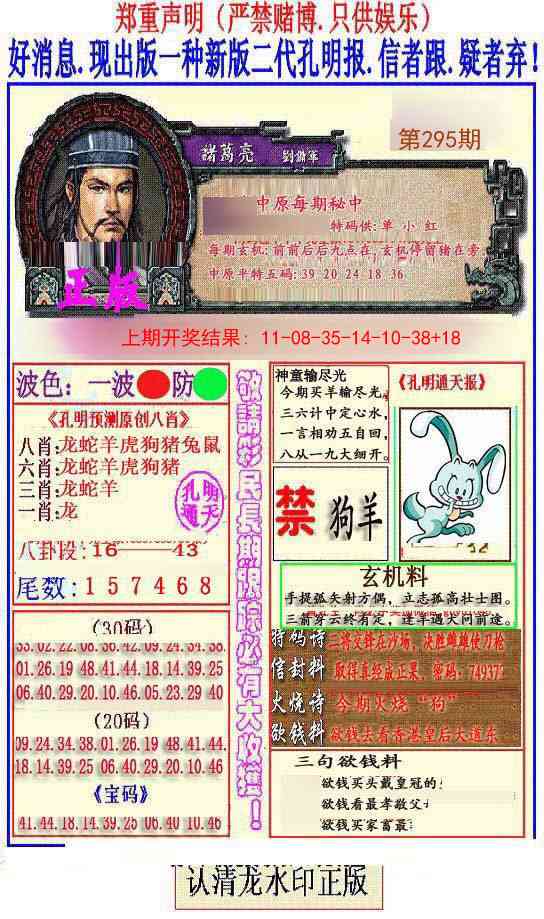 郑重声明（严禁赌博.只供娱乐）
好消息.现出版一种新版二代孔明报.信者跟.疑者弃!
第295期
諸葛亮
中原每期秘中
特码供:单 小 红
每期玄机:前前后后九点在,玄机停留猪在旁
中原平特五码:39 20 24 18 36
正版
上期开奖结果: 11-08-35-14-10-38+18
波色: 一波 防
《孔明预测原创八肖》
八肖:龙蛇羊虎狗猪兔鼠
六肖:龙蛇羊虎狗猪
三肖:龙蛇羊
一肖:龙
孔明通天
八卦段:16——43
尾数:1 5 7 4 6 8
(30码)
33.02.22.08.36.42.09.24.34.38
01.26.19 48.41.44.18.14.39.25
06.40.29 20.10.46 05.23.29 40
(20码)
09.24.34 38.01.26 19 48.41.44
18.14.39 25.06 40.29 20.10.46
《宝码》
41.44.18.14.39.25 06.40 10.46
敬請彩民長期跟踪必有大收獲!
神童输尽光
今期买羊输尽光,
三六计中定心水,
一言相劝五自回,
八从一九大细开。
《孔明通天报》
禁 狗羊
玄机料
手捉弧矢射方偶，立志孤高壮士图。
三箭身云终有定，逢羊遇犬问前途。
特码诗 三将交锋在沙场，决胜雌雄使刀枪
信封料 取得真经成正果，密码：749371
火烧诗 今期火烧“狗”
欲钱料 欲钱去看香港皇后大道东
三句欲钱料
欲钱买头戴皇冠的
欲钱看最孝敬父
欲钱买家畜最
认清龙水印正版